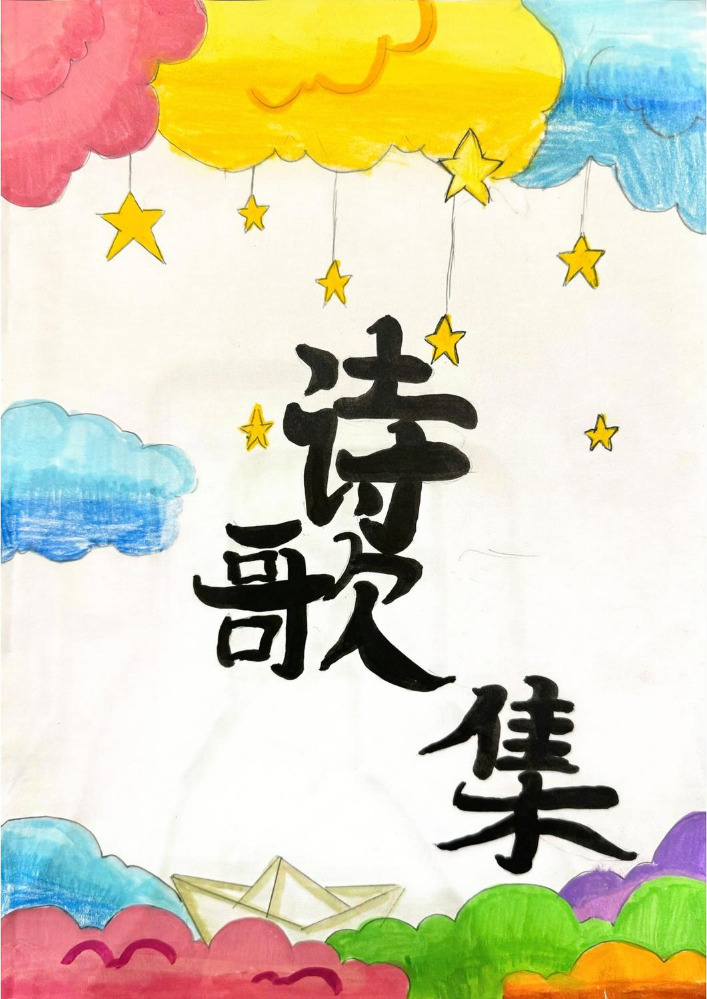 诗
歌
集